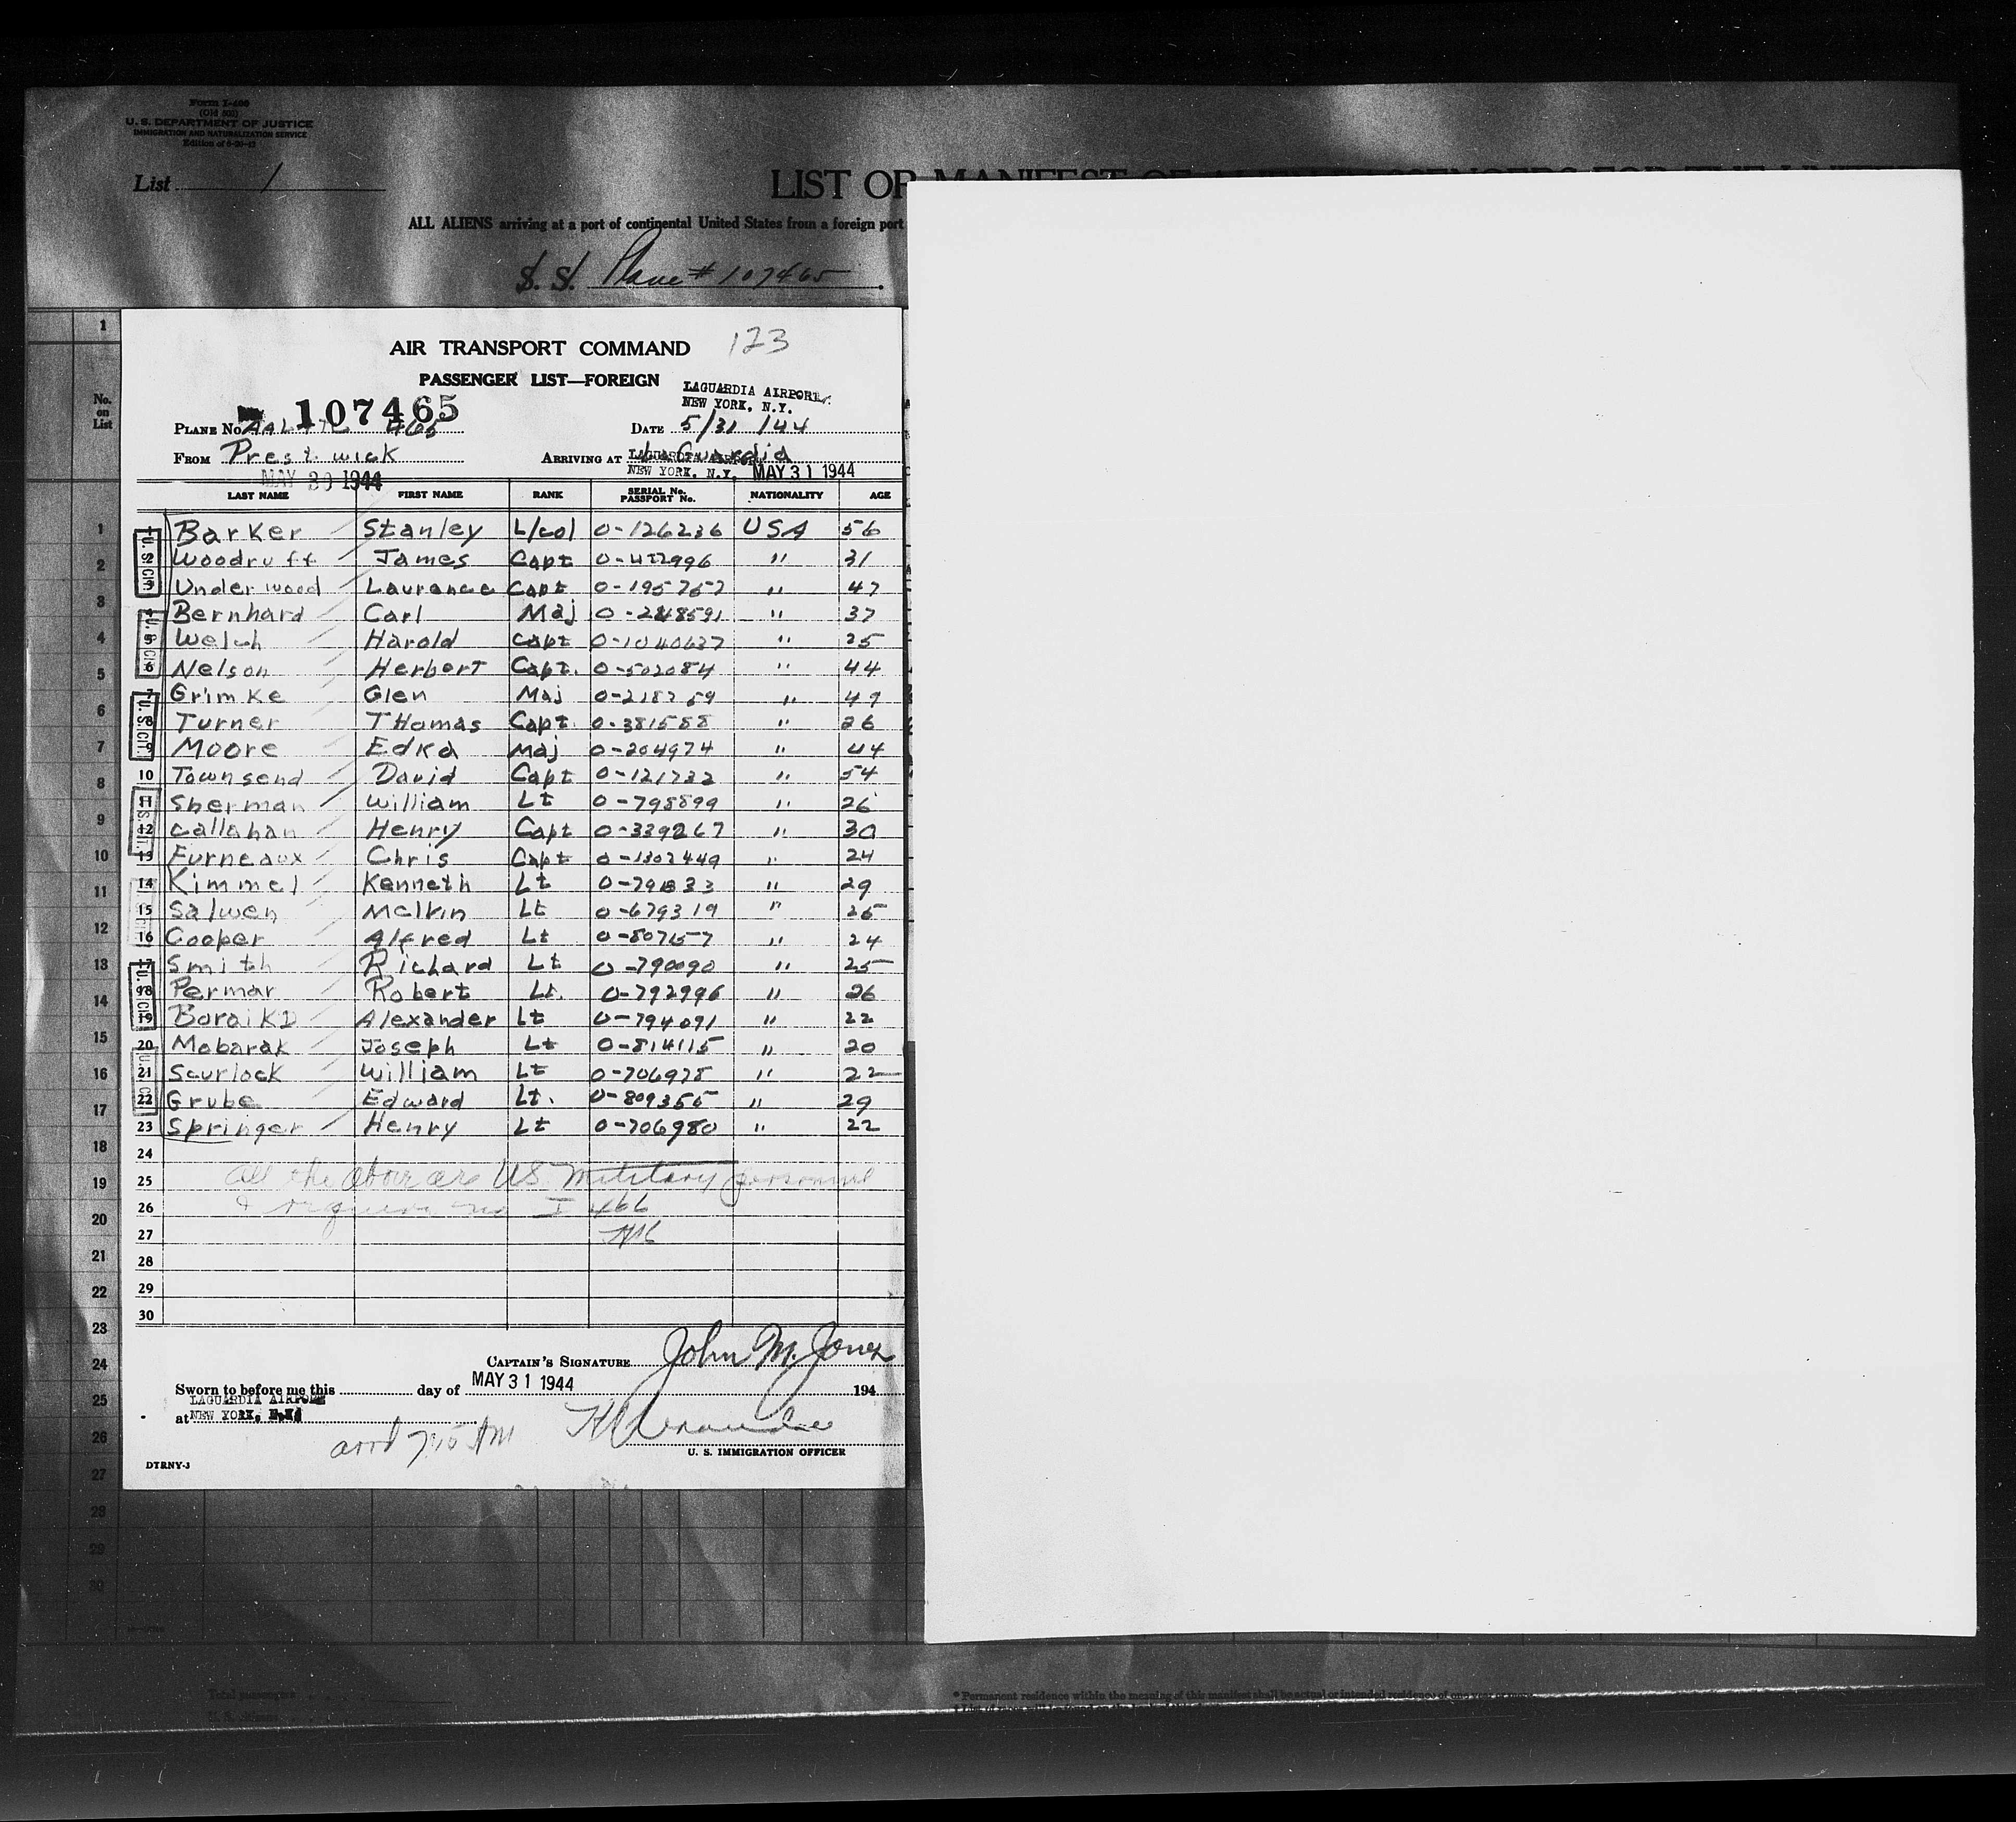 Form I-400
(Old 500)
U. S. DEPARTMENT OF JUSTICE
IMMIGRATION AND NATURALIZATION SERVICE
List 1
LIST OR MANIFEST OF ALIEN PASSENGERS FOR THE UNITED
ALL ALIENS arriving at a port of continental United States from a foreign port
S. S. Plane # 107465
No. on List
AIR TRANSPORT COMMAND 123
PASSENGER LIST—FOREIGN
LAGUARDIA AIRPORT
NEW YORK, N.Y.
107465
PLANE No. 465 DATE 5/31/44
FROM Prestwick ARRIVING AT LaGuardia
LAGUARDIA AIRPORT
NEW YORK, N.Y. MAY 31 1944
MAY 30 1944
LAST NAME FIRST NAME RANK SERIAL No. PASSPORT No. NATIONALITY AGE
1 Barker Stanley L/col O-126236 USA 56
2 Woodruff James Capt " 31
3 Underwood Laurence Capt O-195757 " 47
4 Bernhard Carl Maj O-248591 " 37
5 Welch Harold Capt O-1040637 " 25
6 Nelson Herbert Capt. O-502084 " 44
7 Grimke Glen Maj O-218259 " 49
8 Turner THomas Capt. O-381588 " 26
9 Moore Edka Maj O-204974 " 44
10 Townsend David Capt O-121732 " 54
11 Sherman William Lt O-798899 " 26
12 Callahan Henry Capt O-339267 " 30
13 Furneaux Chris Capt O-1302449 " 24
14 Kimmel Kenneth Lt " 29
15 Salwen Melvin Lt O-679319 " 25
16 Cooper Alfred Lt O-807657 " 24
17 Smith Richard Lt O-790090 " 25
18 Permar Robert Lt. O-792996 " 26
19 BoraiKo Alexander Lt O-794091 " 22
20 Mobarak Joseph Lt O-814115 " 20
21 Scurlock William Lt O-706978 " 22
22 Grube Edward Lt. O-809355 " 29
23 Springer Henry Lt O-706980 " 22
24
25 All the above are US Military personnel
26 & require no I 466
27
28
29
30
CAPTAIN'S SIGNATURE John M. Jones
Sworn to before me this day of MAY 31 1944 194
LAGUARDIA AIRPORT
at NEW YORK, N.Y.
arrd 7:15 AM
U. S. IMMIGRATION OFFICER
DTRNY-3
Total passengers
U. S. citizens
* Permanent residence within the meaning of this manifest shall be actual or intended residence of one year or more.